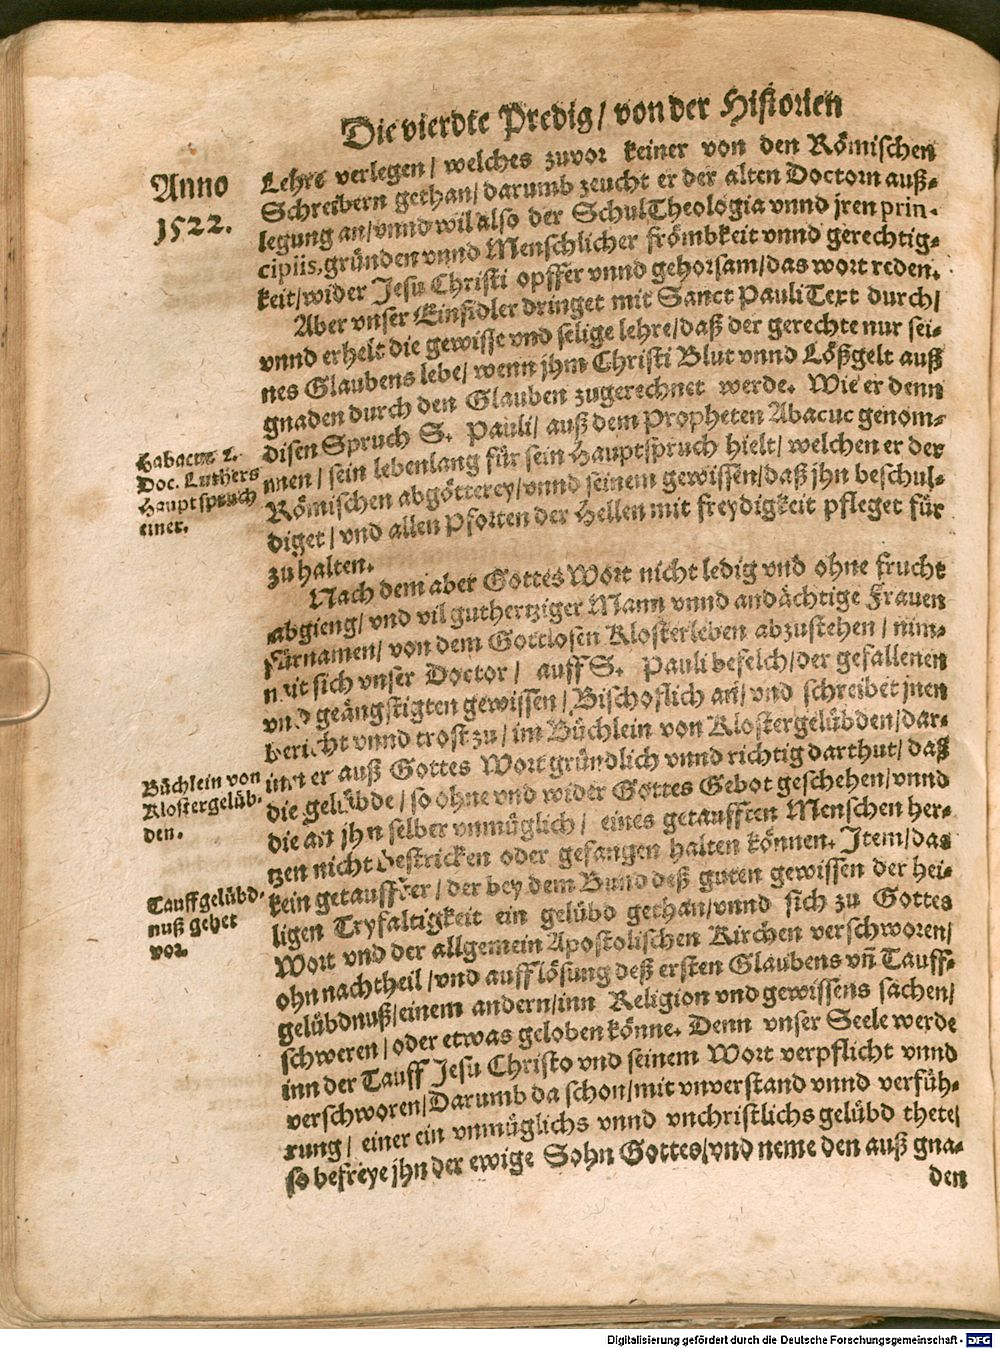 Die vierdte Predig / von der Historien
Anno
1522.
Lehre verlegen / welches zuvor keiner von den Römischen
Schreibern gethan / darumb zeucht er der alten Doctorn auß-
legung an / vnnd wil also der SchulTheologia vnnd jren prin-
cipiis, gründen vnnd Menschlicher frömbkeit vnnd gerechtig-
keit / wider Jesu Christi opffer vnnd gehorsam / das wort reden.
Aber vnser Einsidler dringet mit Sanct Pauli Text durch /
vnnd erhelt die gewisse vnd selige lehre / daß der gerechte nur sei-
nes Glaubens lebe / wenn jhm Christi Blut vnnd Lößgelt auß
gnaden durch den Glauben zugerechnet werde. Wie er denn
disen Spruch S. Pauli / auß dem Propheten Abacuc genom-
nnen / sein lebenlang für sein Hauptspruch hielt / welchen er der
Römischen abgötterey / vnnd seinem gewissen / daß jhn beschul-
diget / vnd allen Pforten der Hellen mit freydigkeit pfleget für
zu halten.
Habacuc 2.
Doc. Luthers
Hauptspruch
einer.
Nach dem aber Gottes Wort nicht ledig vnd ohne frucht
abgieng / vnd vil guthertziger Mann vnnd andächtige Frauen
fürnamen / von dem Gottlosen Klosterleben abzustehen / nim-
mit sich vnser Doctor / auff S. Pauli befelch / der gefallenen
vnd geängstigten gewissen / Bischoflich an / vnd schreibet jnen
bericht vnnd trost zu / im Büchlein von Klostergelübden / dar-
inn er auß Gottes Wort gründlich vnnd richtig darthut / daß
die gelübde / so ohne vnd wider Gottes Gebot geschehen / vnnd
die an jhn selber vnmüglich / eines getaufften Menschen her-
tzen nicht bestricken oder gefangen halten können. Item / das
kein getauffter / der bey dem Bund deß guten gewissen der hei-
ligen Tryfaltigkeit ein gelübd gethan / vnnd sich zu Gottes
Wort vnd der allgemein Apostolischen Kirchen verschworen /
ohn nachtheil / vnd aufflösung deß ersten Glaubens vn̄ Tauff-
gelübdnuß / einem andern / inn Religion vnd gewissens sachen /
schweren / oder etwas geloben könne. Denn vnser Seele werde
inn der Tauff Jesu Christo vnd seinem Wort verpflicht vnnd
verschworen / Darumb da schon / mit vnverstand vnnd verfüh-
rung / einer ein vnmüglichs vnnd vnchristlichs gelübd thete /
so befreye jhn der ewige Sohn Gottes / vnd neme den auß gna-
den
Büchlein von
Klostergelüb-
den.
Tauffgelübd-
nuß gehet
vor.
Digitalisierung gefördert durch die Deutsche Forschungsgemeinschaft - DFG